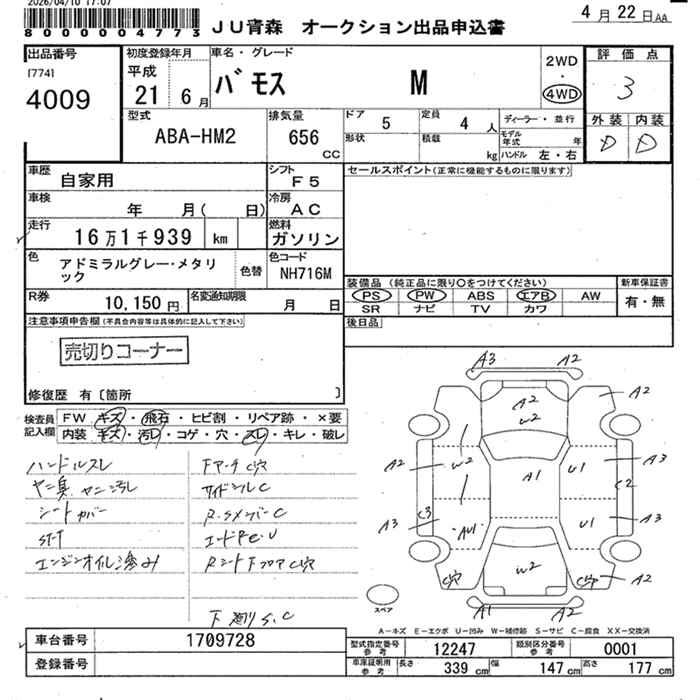 2026/04/10 17:07
8000004773
JU青森 オークション出品申込書
4月22日AA
出品番号
[774]
4009
初度登録年月
平成
21 6月
車名・グレード
バモス M
2WD
・
4WD
評価点
3
外装 内装
D D
型式
ABA-HM2
排気量
656
CC
ドア 5
定員 4 人
形状
積載 kg
ディーラー・並行
モデル年式 年
ハンドル 左・右
車歴
自家用
シフト
F5
セールスポイント(正常に機能するものに限ります)
車検
年 月( 日)
冷房
AC
走行
16万1千939 km
燃料
ガソリン
色
アドミラルグレー・メタリ
ック
色替
色コード
NH716M
装備品 (純正品に限り○をつけてください)
PS PW ABS エアB AW
SR ナビ TV カワ
新車保証書
有・無
R券
10,150円
名変通知期限
月 日
後日品
注意事項申告欄(不具合内容等は具体的に記入して下さい)
売切りコーナー
修復歴 有〔箇所 〕
検査員
記入欄
FW キズ・飛石・ヒビ割・リペア跡・×要
内装 キズ・汚レ・コゲ・穴・スレ・キレ・破レ
ハンドルスレ
ヤニ臭 ヤニ汚レ
シートカバー
エンジンオイル滲み
FアーチC穴
サイドシルC
R.SメンバーC
RシートFフロアC穴
下廻りS.C
A3 A2
A2 W2 A2
A2 W2 A1 U1 A3
C2
C3 A3 AU1 U1 A3
C穴 W2 C穴 A2
A1 A2
スペア
A-キズ E-エクボ U-凹み W-補修跡 S-サビ C-腐食 XX-交換済
車台番号
1709728
登録番号
型式指定番号
参考
12247
類別区分番号
参考
0001
車庫証明用
参考
長さ 339cm 幅 147cm 高さ 177cm